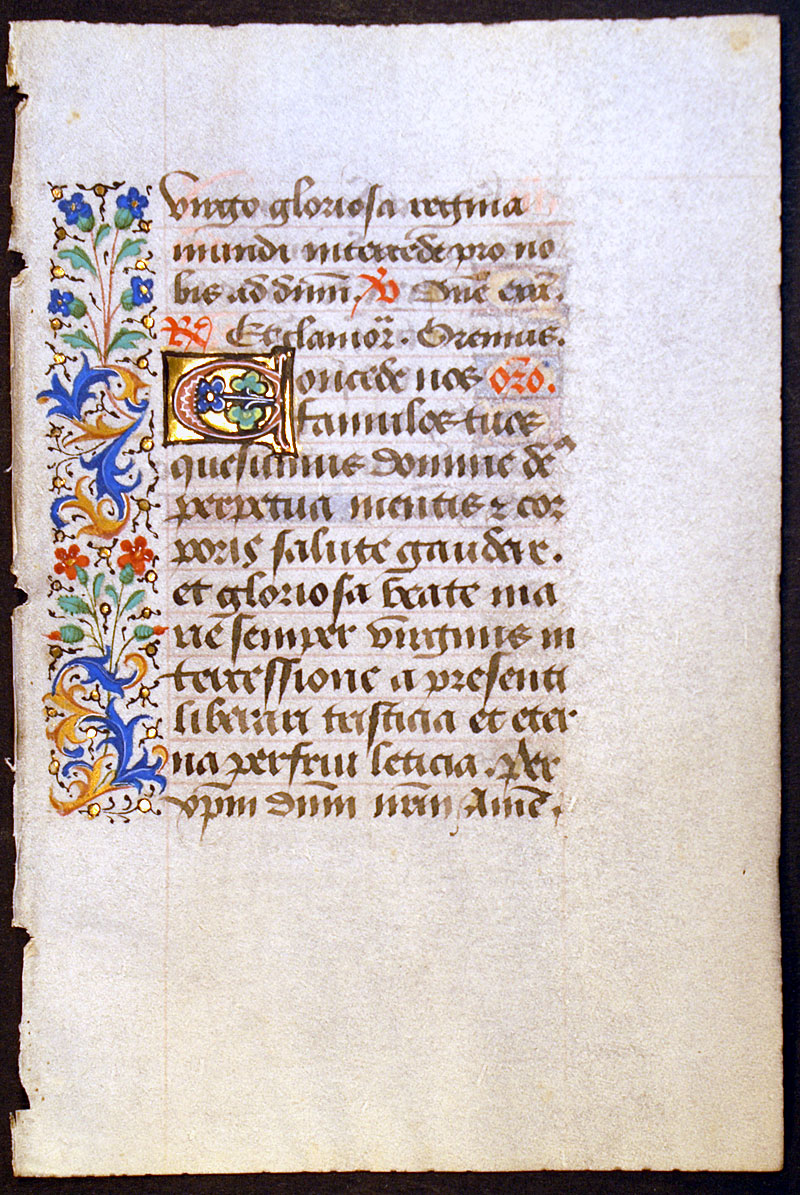 virgo gloriosa regina
mundi intercede pro no
bis ad dominū. ℣ Dn̄e exā.
℟ Et clamor̄. Oremus.
Concede nos Or̄o.
famulos tuos
quesumus domine de9
perpetua mentis ⁊ cor
poris salute gaudere.
et gloriosa beate ma
rie semper virginis in
tercessione a presenti
liberari tristicia et eter
na perfrui leticia. Per
xp̄m dn̄m nr̄m Amē.